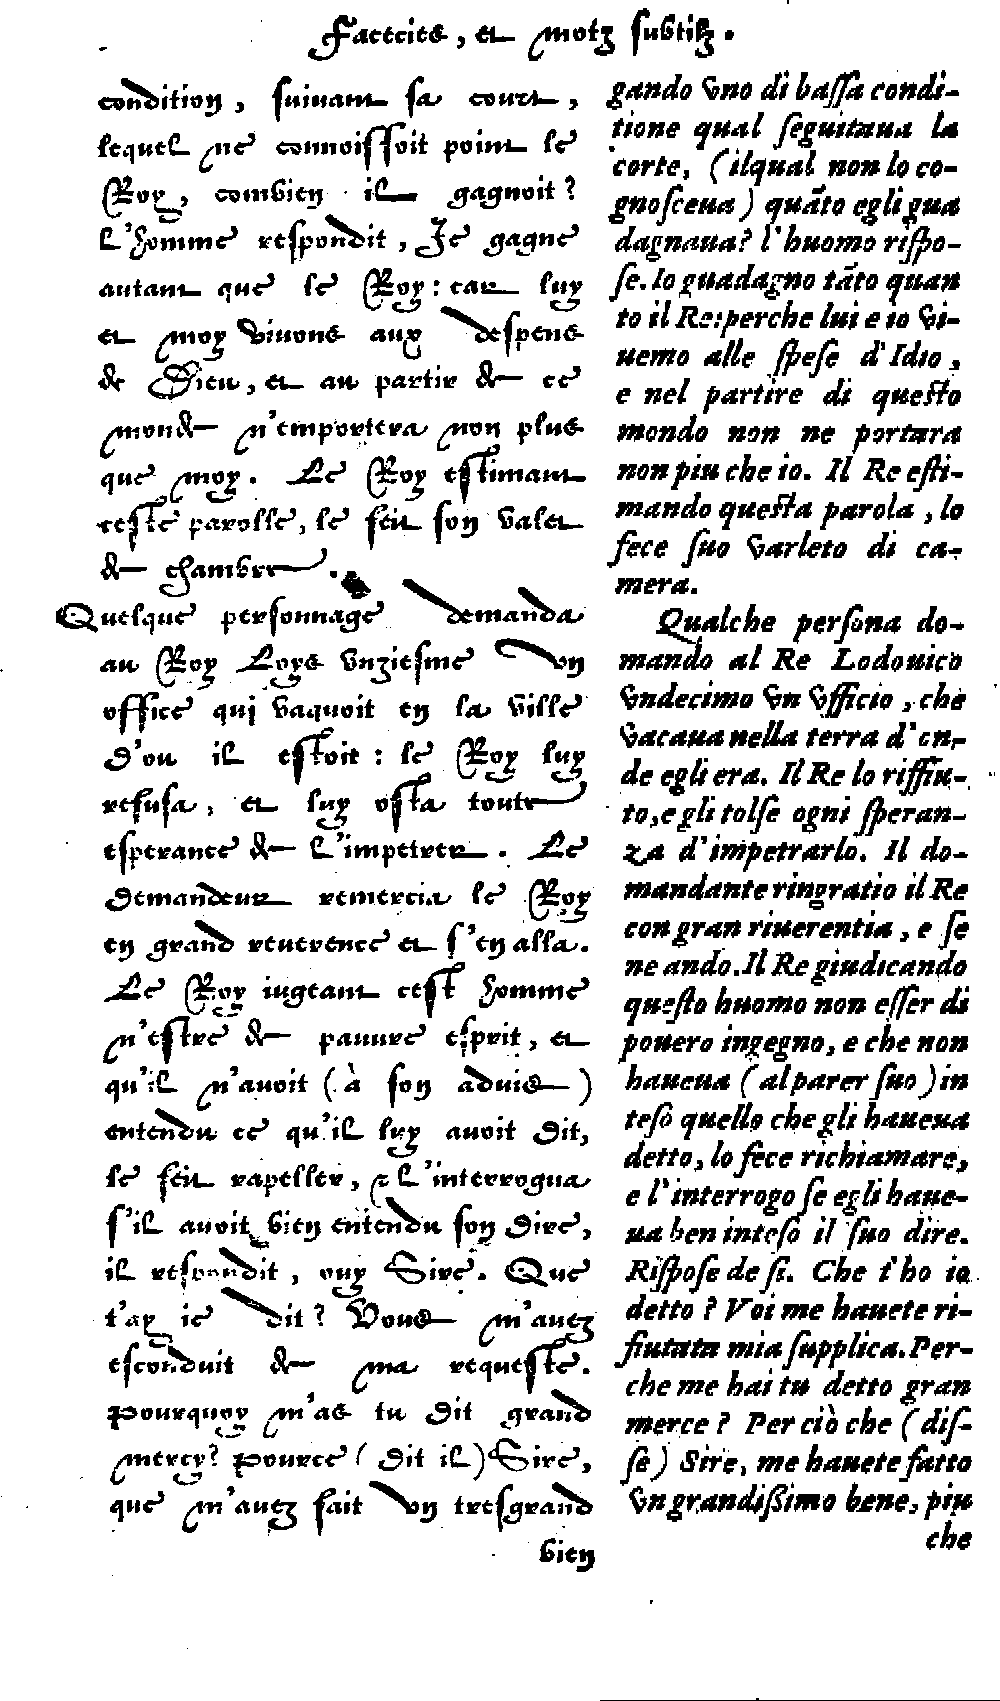 Facecies, et motz subtilz.
condition, suiuant sa court,
lequel ne connoissoit point le
Roy, combien il gagnoit?
L'homme respondit, Je gagne
autant que le Roy: car luy
et moy viuons aux despens
de Dieu, et au partir de ce
monde n'emportera non plus
que moy. Le Roy estimant
ceste parolle, le feit son valet
de chambre.
Quelque personnage demanda
au Roy Loys vnziesme vn
office qui vaquoit en la ville
d'ou il estoit: le Roy luy
refusa, et luy osta toute
esperance de l'impetrer. Le
demandeur remercia le Roy
en grand reuerence et s'en alla.
Le Roy iugeant cest homme
n'estre de pauure esprit, et
qu'il n'auoit (à son aduis)
entendu ce qu'il luy auoit dit,
le feit rapeller, & l'interrogua
s'il auoit bien entendu son dire,
il respondit, ouy Sire. Que
t'ay ie dit? Vous m'auez
esconduit de ma requeste.
Pourquoy m'as tu dit grand
mercy? Pource (dit il) Sire,
que m'auez fait vn tresgrand
bien
gando vno di bassa condi-
tione qual seguitaua la
corte, (ilqual non lo co-
gnosceua) quãto egli gua
dagnaua? l'huomo rispo-
se. Io guadagno tãto quan
to il Re: perche lui e io vi-
uemo alle spese d'Idio,
e nel partire di questo
mondo non ne portara
non piu che io. Il Re esti-
mando questa parola, lo
fece suo varleto di ca-
mera.
Qualche persona do-
mando al Re Lodouico
vndecimo vn vfficio, che
vacaua nella terra d'on-
de egli era. Il Re lo riffiu-
to, e gli tolse ogni speran-
za d'impetrarlo. Il do-
mandante ringratio il Re
con gran riuerentia, e se
ne ando. Il Re giudicando
questo huomo non esser di
pouero ingegno, e che non
haueua (al parer suo) in
teso quello che gli haueua
detto, lo fece richiamare,
e l'interrogo se egli haue-
ua ben inteso il suo dire.
Rispose de si. Che t'ho io
detto? Voi me hauete ri-
fiutata mia supplica. Per-
che me hai tu detto gran
merce? Per ciò che (dis-
se) Sire, me hauete fatto
vn grandissimo bene, piu
che